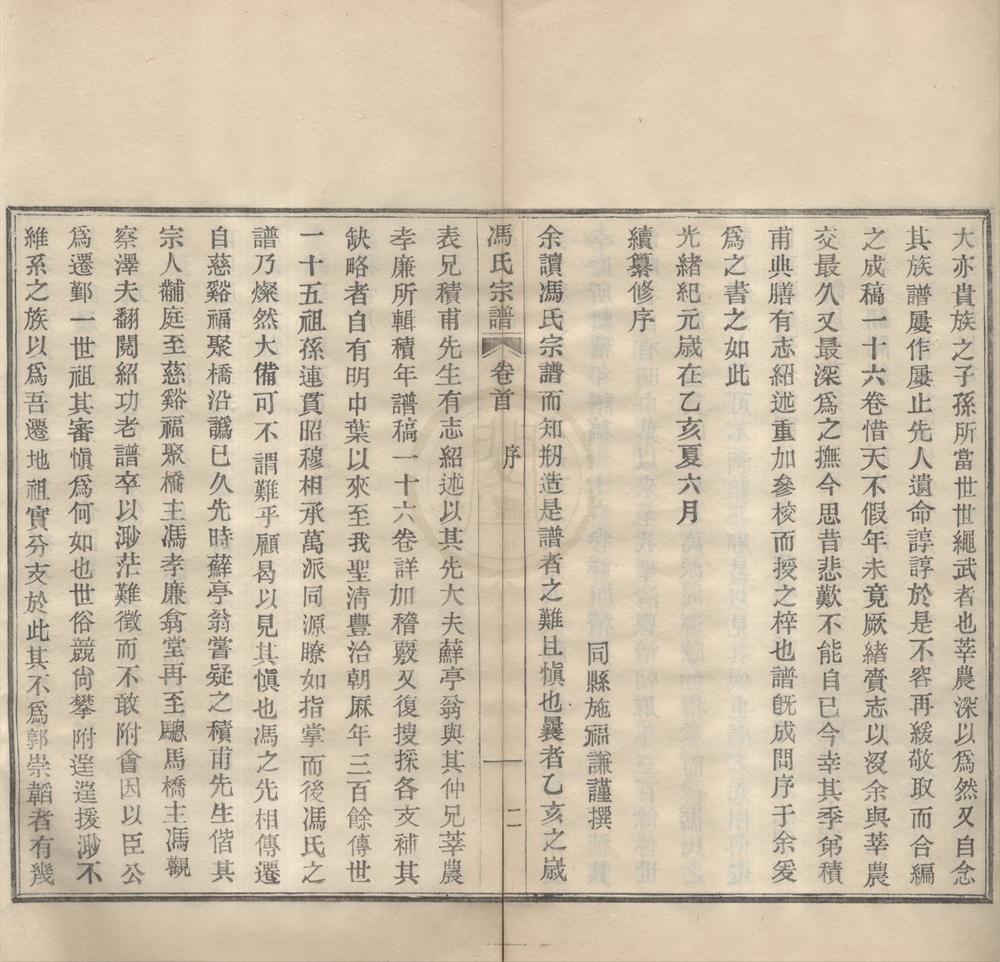 大亦貴族之子孫所當世世繩武者也莘農深以爲然又自念
其族譜屢作屢止先人遺命諄諄於是不容再緩敬取而合編
之成稿一十六卷惜天不假年未竟厥緒賫志以沒余與莘農
交最久又最深爲之撫今思昔悲歎不能自已今幸其季弟積
甫典膳有志紹述重加參校而授之梓也譜旣成問序于余爰
爲之書之如此
光緒紀元歲在乙亥夏六月
續纂修序
同縣施福謙謹撰
余讀馮氏宗譜而知剏造是譜者之難且愼也曩者乙亥之歲
馮氏宗譜 卷首 序 二
表兄積甫先生有志紹述以其先大夫蘚亭翁與其仲兄莘農
孝廉所輯積年譜稿一十六卷詳加稽覈又復搜採各支補其
缺略者自有明中葉以來至我聖淸豐治朝厤年三百餘傳世
一十五祖孫連貫昭穆相承萬派同源瞭如指掌而後馮氏之
譜乃燦然大備可不謂難乎顧曷以見其愼也馮之先相傳遷
自慈谿福聚橋沿譌已久先時蘚亭翁嘗疑之積甫先生偕其
宗人黼庭至慈谿福聚橋主馮孝廉翕堂再至驄馬橋主馮觀
察澤夫翻閱紹功老譜卒以渺茫難徵而不敢附會因以臣公
爲遷鄞一世祖其審愼爲何如也世俗競尙攀附遑遑援渺不
維系之族以爲吾遷地祖實分支於此其不爲郭崇韜者有幾